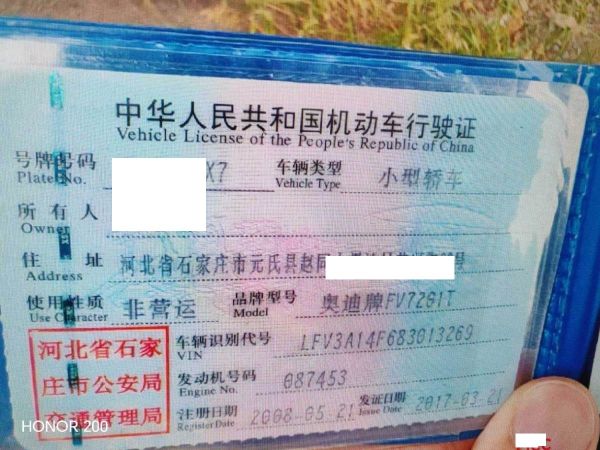 中华人民共和国机动车行驶证
Vehicle License of the People's Republic of China
号牌号码 X7 车辆类型 小型轿车
Plate No. Vehicle Type
所有人
Owner
住址 河北省石家庄市元氏县赵同
Address
使用性质 非营运 品牌型号 奥迪牌FV7281T
Use Character Model
车辆识别代号 LFV3A14F683013269
VIN
发动机号码 087453
Engine No.
注册日期 2008-05-21 发证日期 2017-03-21
Register Date Issue Date
河北省石家
庄市公安局
交通管理局
HONOR 200